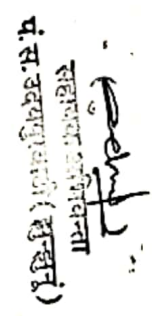 सहायक अभियन्ता
पं.स. उदयपुरवाटी (झुन्झुनूं)